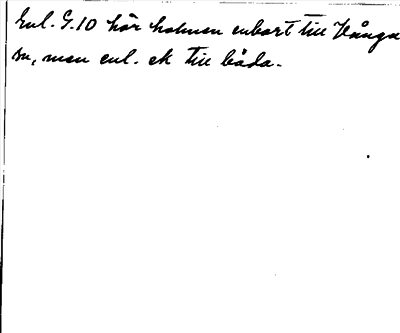 Enl. G.10 hör holmen enbart till Hånga
sn, men enl. ek till båda.